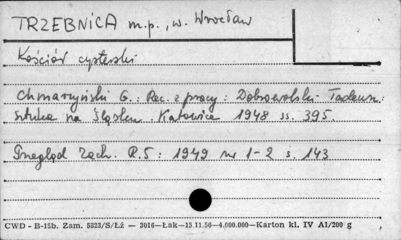 TRZEBNICA m.p., w. Wrocław
Kościół cysterski
Chmarzyński G.: Rec. z pracy: Dobrowolski Tadeusz:
Sztuka na Śląsku. Katowice 1948 ss. 395.
Przegląd Zach. R.5: 1949 nr 1-2 s. 143
CWD - B-15b. Zam. 5323/S/Łż — 3016—Łak—15.11.50—4.000.000—Karton kl. IV A1/200 g